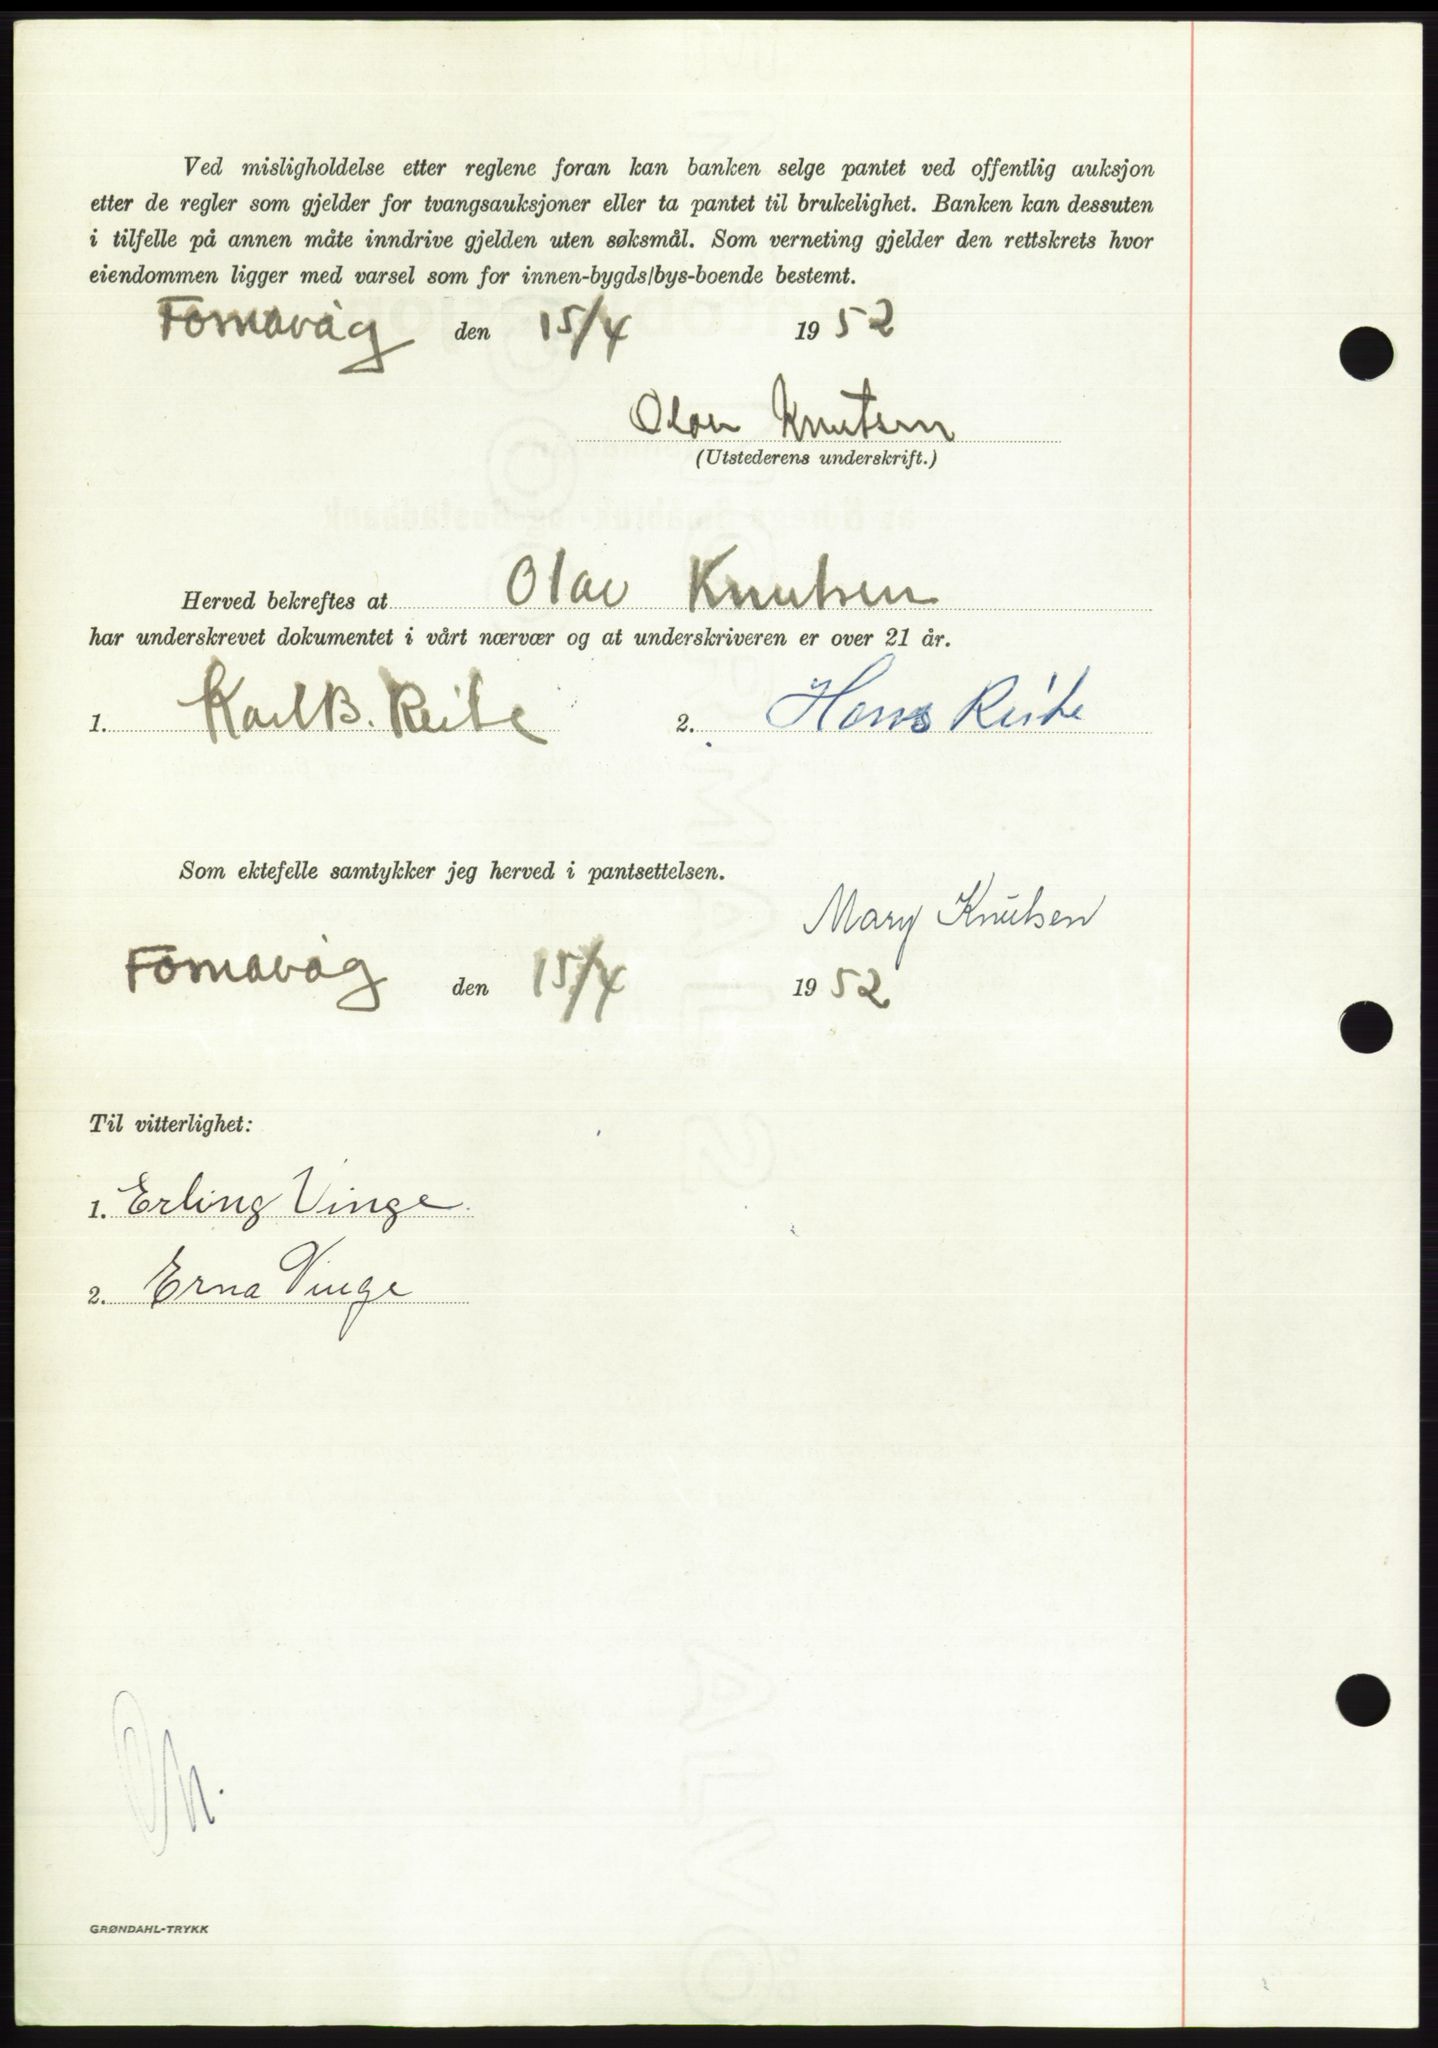 Ved misligholdelse etter reglene foran kan banken selge pantet ved offentlig auksjon
etter de regler som gjelder for tvangsauksjoner eller ta pantet til brukelighet. Banken kan dessuten
i tilfelle på annen måte inndrive gjelden uten søksmål. Som verneting gjelder den rettskrets hvor
eiendommen ligger med varsel som for innen-bygds/bys-boende bestemt.
Fosnavåg den 15/4 1952
Olav Knutsen
(Utstederens underskrift.)
Herved bekreftes at Olav Knutsen
har underskrevet dokumentet i vårt nærvær og at underskriveren er over 21 år.
1. Karl B. Reite 2. Hans Reite
Som ektefelle samtykker jeg herved i pantsettelsen.
Mary Knutsen
Fosnavåg den 15/4 1952
Til vitterlighet:
1. Erling Vinge.
2. Erna Vinge
GRØNDAHL-TRYKK